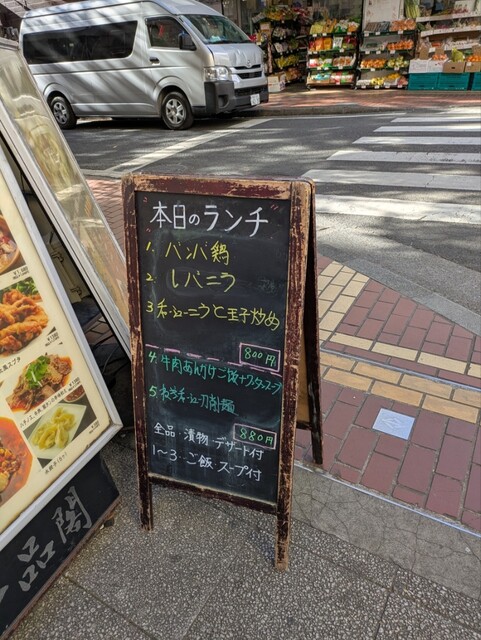 本日のランチ
1. バンバ鶏
2 レバニラ
3 チャーシューニラと玉子炒め
800円
4. 牛肉あんかけご飯+ワンタンスープ
5. チャーシュー刀削麺
880円
全品・漬物・デザート付
1〜3 ご飯・スープ付
品閣